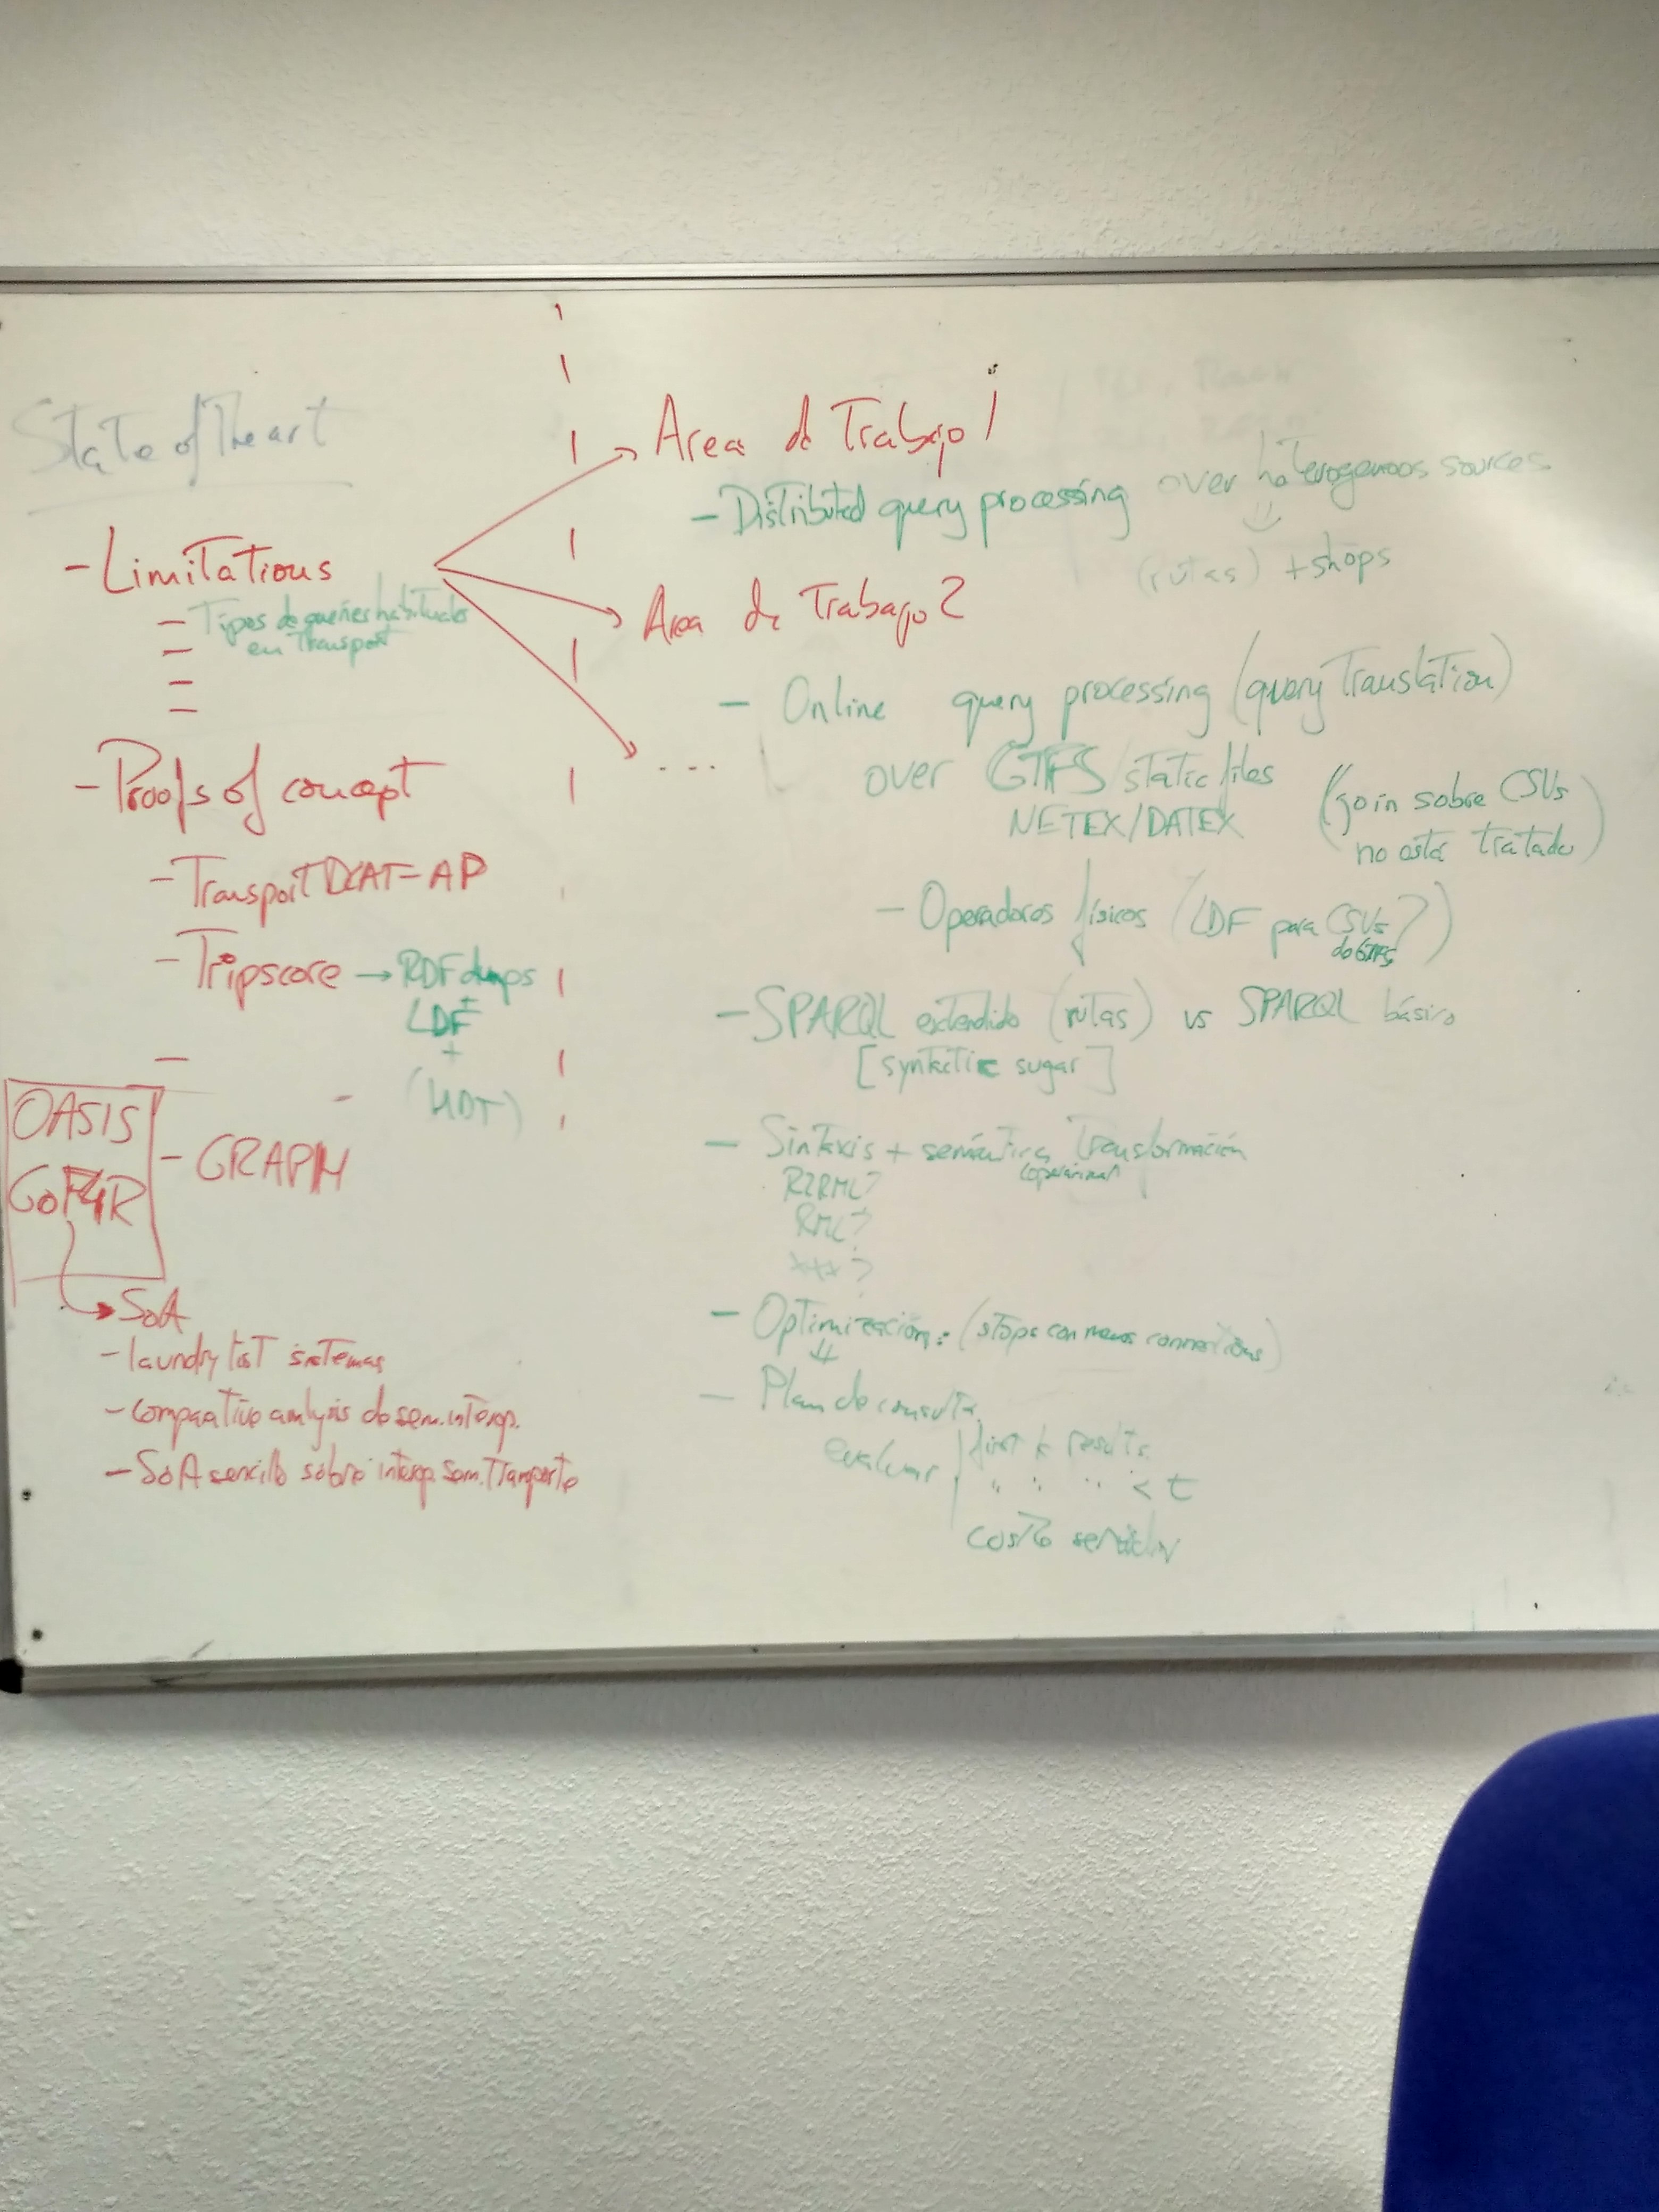 State of the art
- Limitations
- Tipos de queries habituales
en transport
- Proofs of concept
- Transport DCAT-AP
- Tripscore → RDF dumps
LDF
+
(HDT)
OASIS
GoF4R
- GRAPH
SoA
- laundry list sistemas
- comparative analysis de sem. interop.
- SoA sencillo sobre interop. sem. Transporte
Area de Trabajo 1
- Distributed query processing over heterogeneous sources
(rutas) + shops
Area de Trabajo 2
...
- Online query processing (query translation)
over GTFS static files
NETEX/DATEX
(join sobre CSVs
no está tratado)
- Operadores físicos (LDF para CSVs?)
de GTFS
- SPARQL extendido (rutas) vs SPARQL básico
[syntactic sugar]
- Sintaxis + semántica transformación
(operacional)
R2RML?
RML?
xxx?
- Optimización: (stops con menos connections)
- Plan de consulta
evaluar
first k results
" " " < t
costo servidor